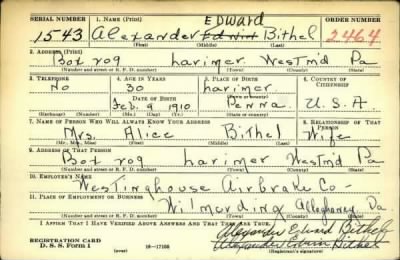 SERIAL NUMBER 1. NAME (Print) ORDER NUMBER
EDWARD
1543 Alexander Edwin Bithel 2464
(First) (Middle) (Last)
2. ADDRESS (Print)
Box 709 Larimer Westm'd Pa
(Number and street or R. F. D. number) (Town) (County) (State)
3. TELEPHONE 4. AGE IN YEARS 5. PLACE OF BIRTH 6. COUNTRY OF CITIZENSHIP
No 30 Larimer
DATE OF BIRTH
Feb. 9 1910 Penna. U.S.A.
(Exchange) (Number) (Mo.) (Day) (Yr.) (State or country)
7. NAME OF PERSON WHO WILL ALWAYS KNOW YOUR ADDRESS 8. RELATIONSHIP OF THAT PERSON
Mrs. Alice Bithel Wife
(Mr., Mrs., Miss) (First) (Middle) (Last)
9. ADDRESS OF THAT PERSON
Box 709 Larimer Westm'd Pa
(Number and street or R. F. D. number) (Town) (County) (State)
10. EMPLOYER'S NAME
Westinghouse Airbrake Co-
11. PLACE OF EMPLOYMENT OR BUSINESS
Wilmerding Allegheney Pa
(Number and street or R. F. D. number) (Town) (County) (State)
I AFFIRM THAT I HAVE VERIFIED ABOVE ANSWERS AND THAT THEY ARE TRUE.
Alexander Edward Bithel
REGISTRATION CARD Alexander Edwin Bithel
D. S. S. Form 1 (over) 16-17105 (Registrant's signature)